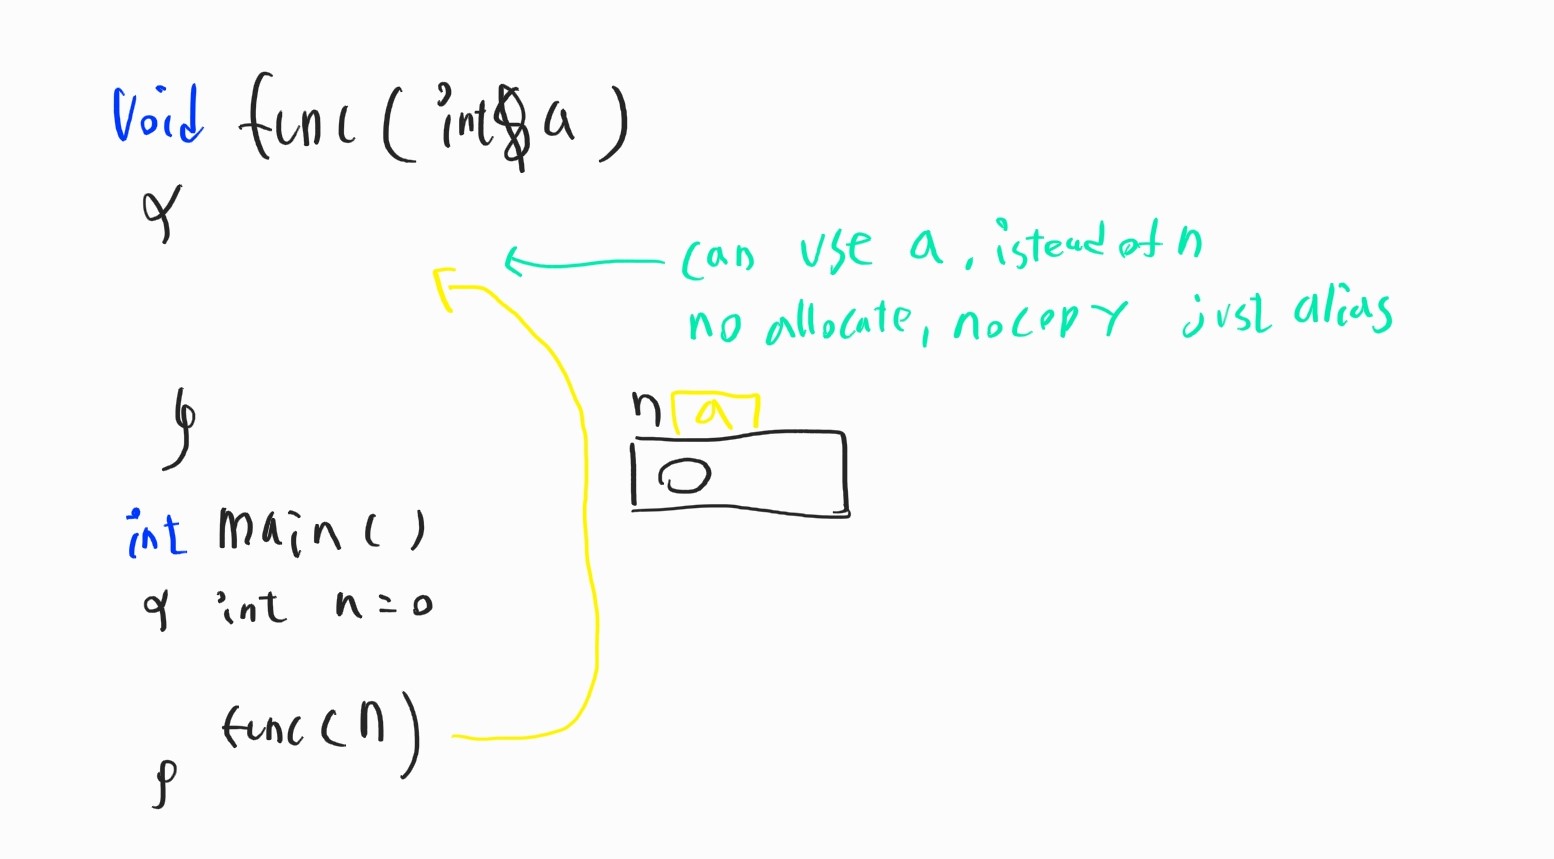 void func( int& a )
{
can use a, istead of n
no allocate, no copy just alias
}
n a
0
int main()
{ int n = 0
func(n)
}